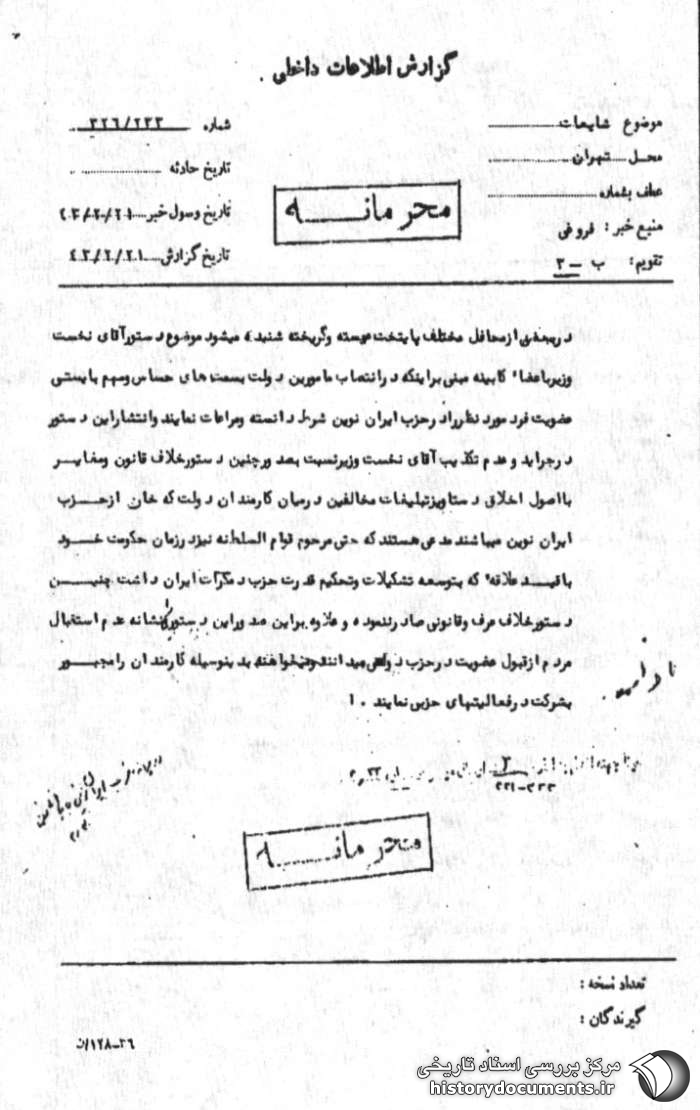 گزارش اطلاعات داخلی
موضوع شایعات
شماره ۳۲۶/۲۳۳
محل تهران
تاریخ حادثه
عطف بشماره
تاریخ وصول خبر ۴۳/۲/۲۱
منبع خبر : فروغی
تاریخ گزارش ۴۳/۲/۲۱
تقویم : ب - ۳
محرمانه
در بعضی از محافل مختلف پایتخت جسته وگریخته شنیده میشود موضوع دستور آقای نخست
وزیر باعضاء کابینه مبنی براینکه در انتصاب مامورین دولت بسمت های حساس ومهم بایستی
عضویت فرد مورد نظر را در حزب ایران نوین شرط دانسته ومراعات نمایند وانتشار این دستور
در جراید و عدم تکذیب آقای نخست وزیر نسبت بصدور چنین دستور خلاف قانون ومغایر
با اصول اخلاقی دستاویز تبلیغات مخالفین در میان کارمندان دولت که خارج از حزب
ایران نوین میباشند مدعی هستند که حتی مرحوم قوام السلطنه نیز در زمان حکومت خود
با قید علاقه که بتوسعه تشکیلات وتحکیم قدرت حزب دمکرات ایران داشت چنین
دستور خلاف عرف وقانونی صادر ننموده و علاوه براین صدور این دستور را نشانه عدم استقبال
مردم از قبول عضویت در حزب دولتی میدانند ومیخواهند بدینوسیله کارمندان را مجبور
بشرکت در فعالیتهای حزبی نمایند . ا
۲۳۱-۲۳۳
محرمانه
تعداد نسخه :
گیرندگان :
۲۶-۱۲۸/ن
مرکز بررسی اسناد تاریخی
historydocuments.ir